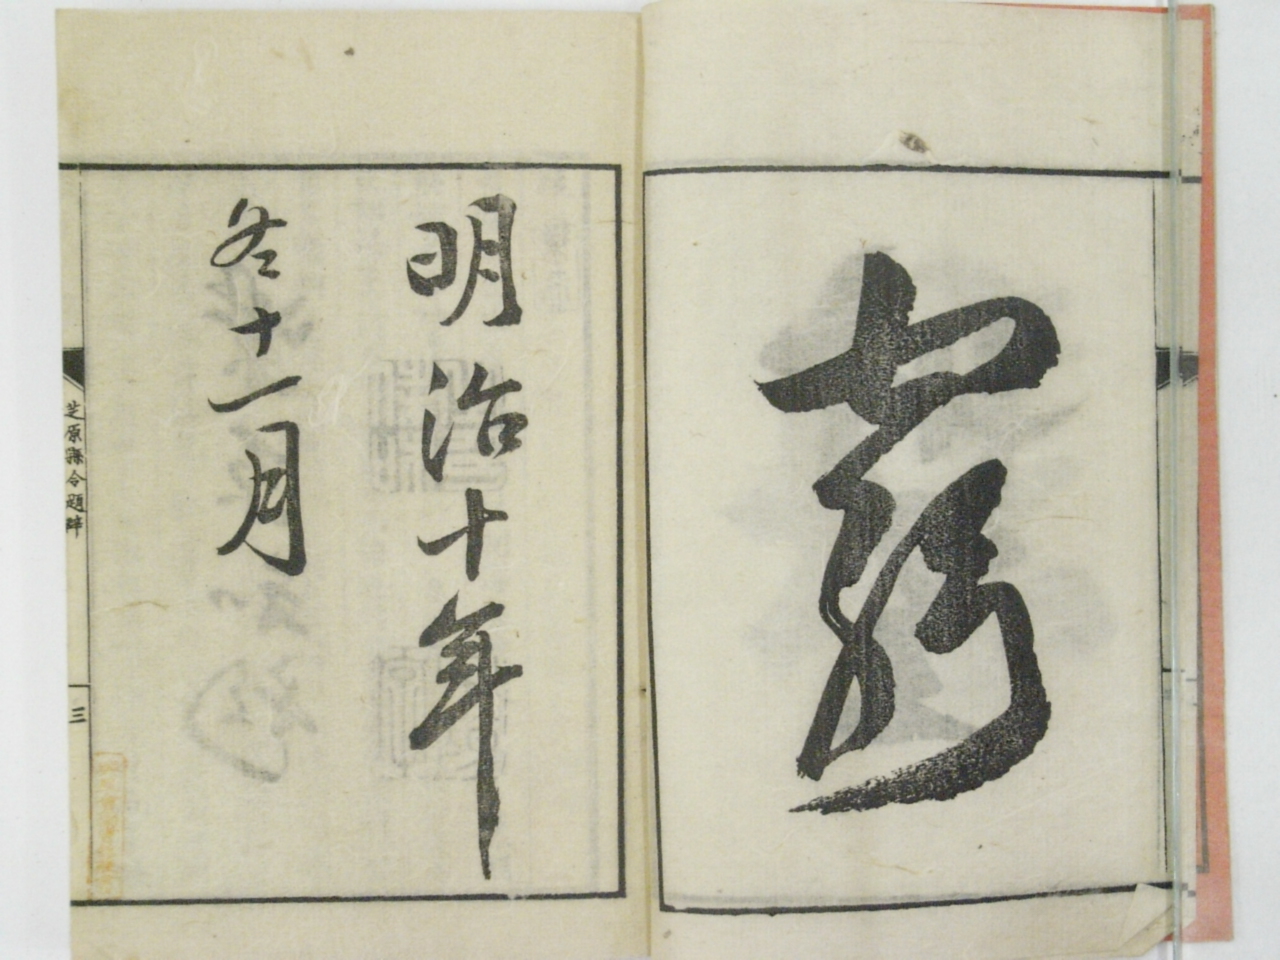 窮
明治十年
冬十一月
芝原縣令題辞
三